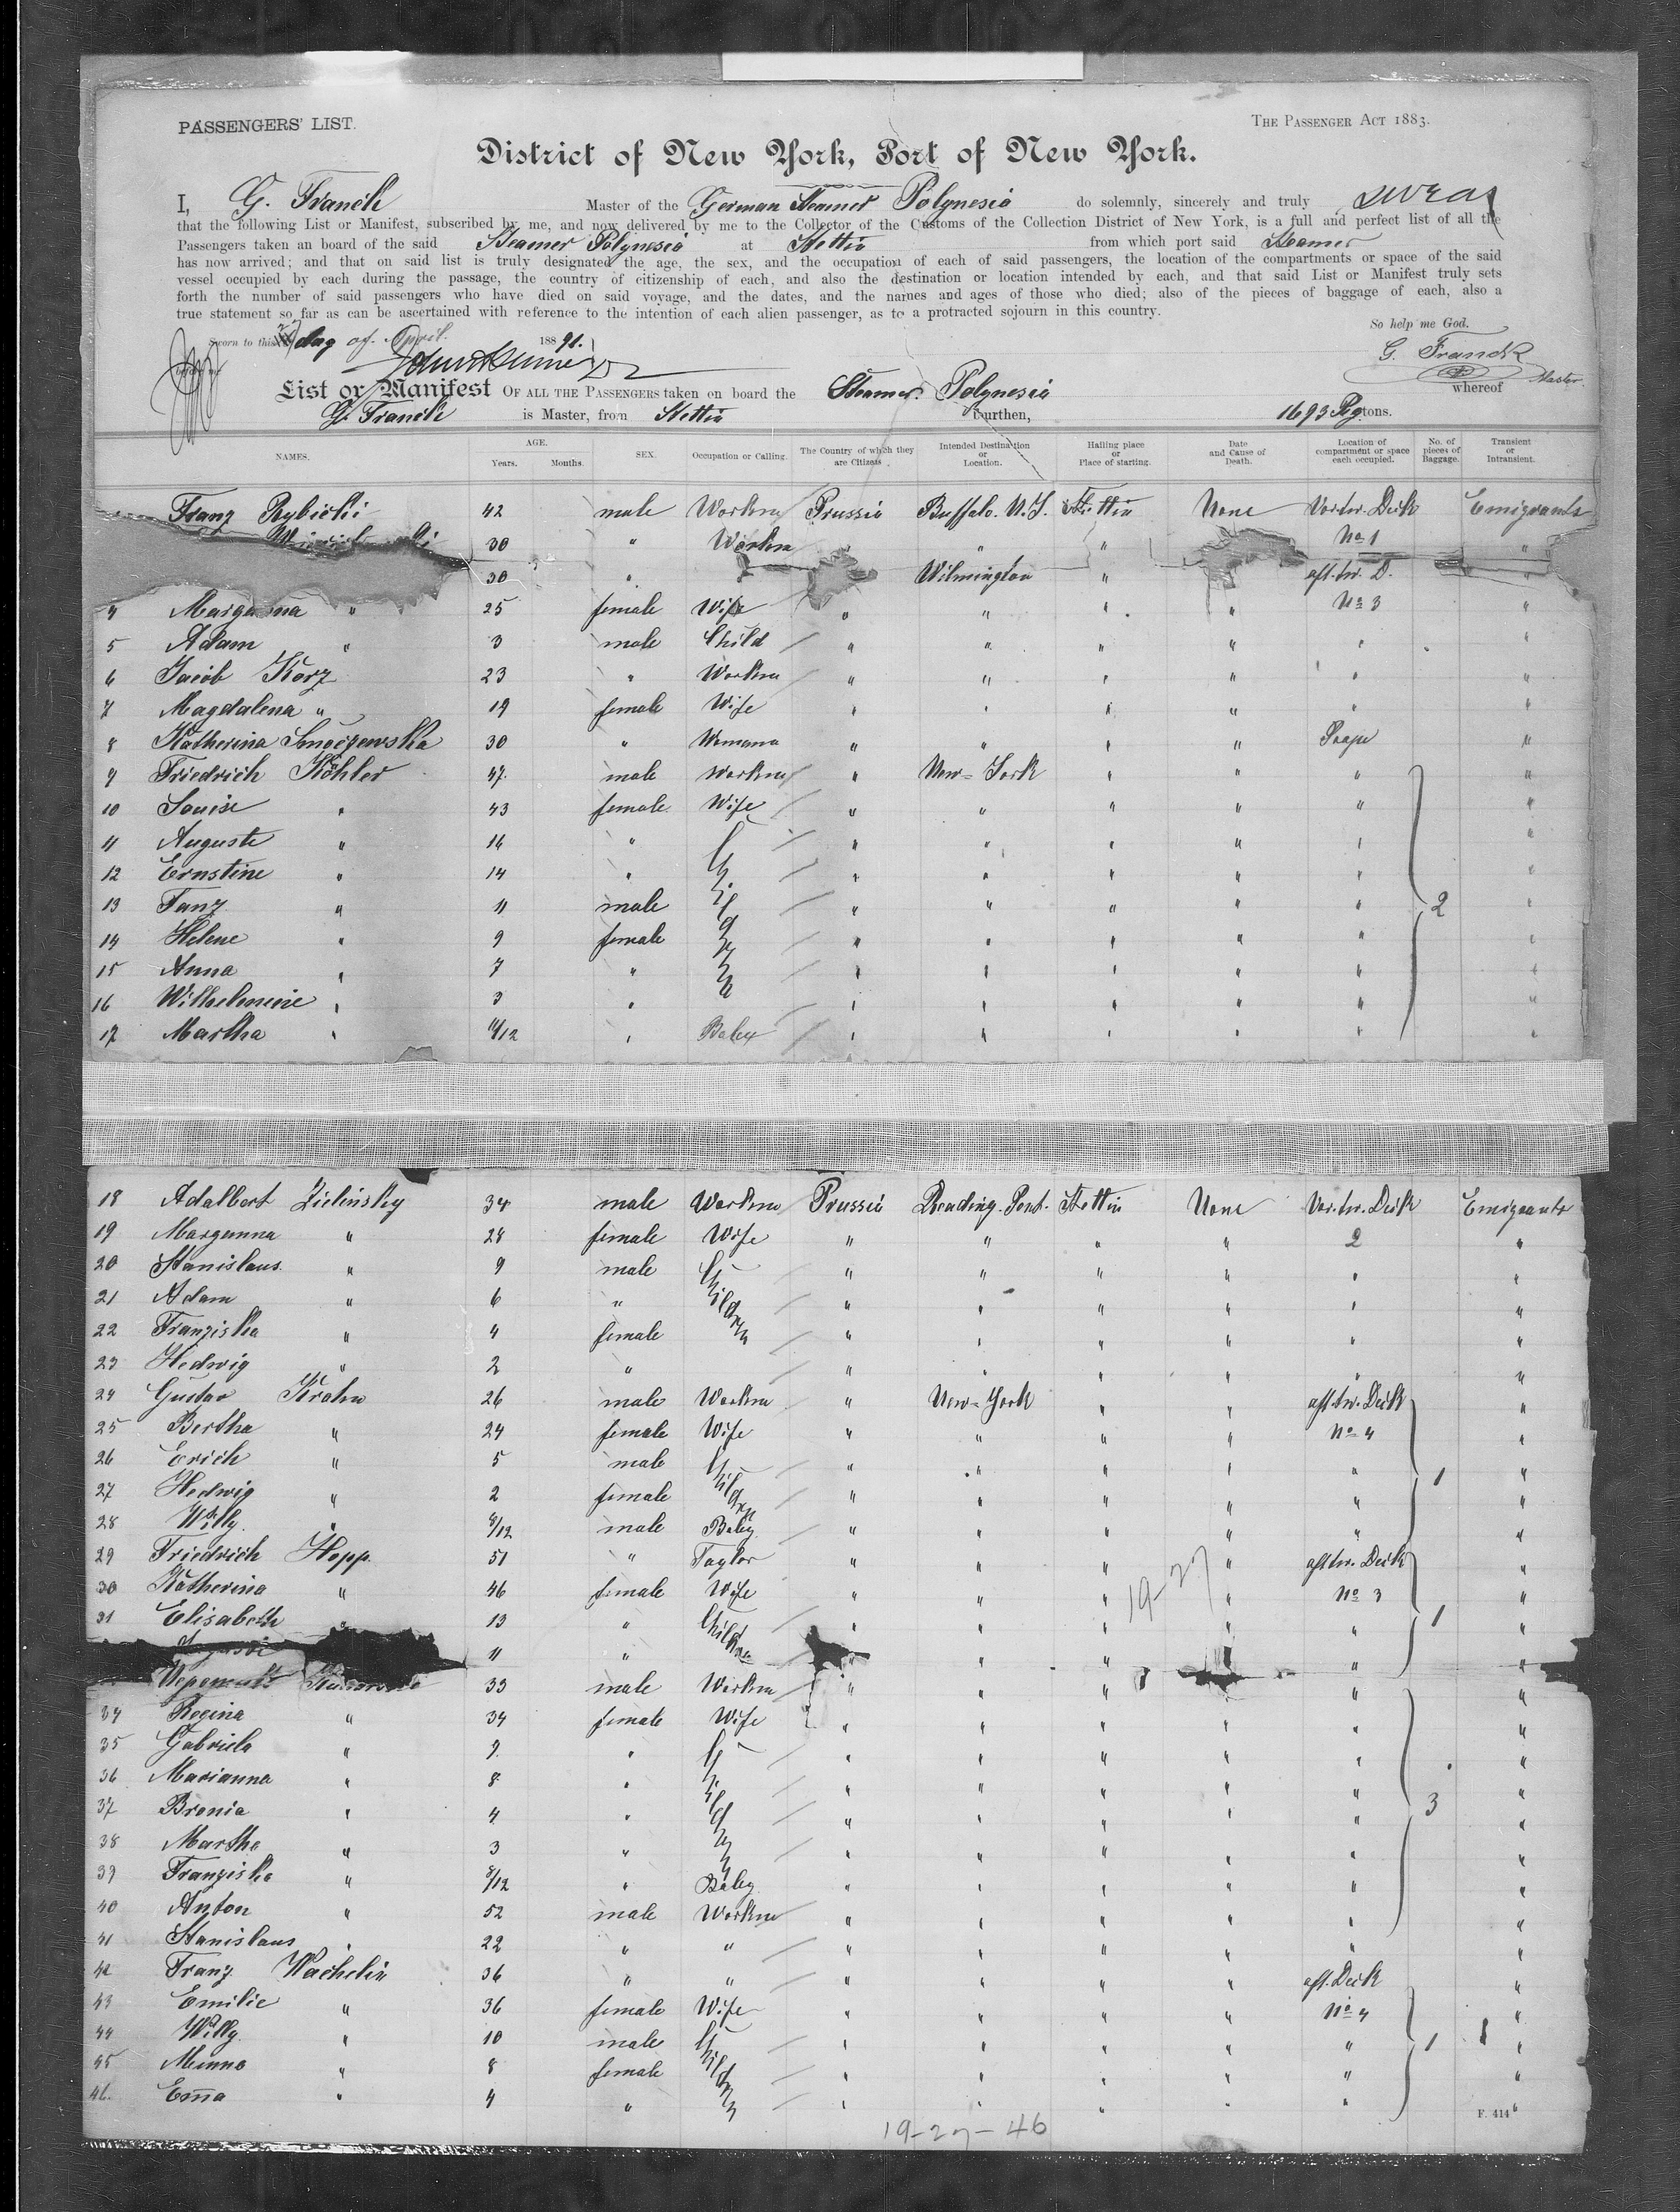 PASSENGERS' LIST.
THE PASSENGER ACT 1883.
District of New York, Port of New York.
I, G. Franck Master of the German Steamer Polynesia do solemnly, sincerely and truly swear
that the following List or Manifest, subscribed by me, and now delivered by me to the Collector of the Customs of the Collection District of New York, is a full and perfect list of all the
Passengers taken an board of the said Steamer Polynesia at Stettin from which port said Steamer
has now arrived; and that on said list is truly designated the age, the sex, and the occupation of each of said passengers, the location of the compartments or space of the said
vessel occupied by each during the passage, the country of citizenship of each, and also the destination or location intended by each, and that said List or Manifest truly sets
forth the number of said passengers who have died on said voyage, and the dates, and the names and ages of those who died; also of the pieces of baggage of each, also a
true statement so far as can be ascertained with reference to the intention of each alien passenger, as to a protracted sojourn in this country.
So help me God.
Sworn to this 27 day of April 1891.
G. Franck
Master.
List or Manifest OF ALL THE PASSENGERS taken on board the Steamer Polynesia whereof
G. Franck is Master, from Stettin burthen, 1693 Rg. tons.
NAMES. AGE. Years. Months. SEX. Occupation or Calling. The Country of which they are Citizens. Intended Destination or Location. Hailing place or Place of starting. Date and Cause of Death. Location of compartment or space each occupied. No. of pieces of Baggage. Transient or Intransient.
Franz Rybicki 42 male Workm Prussia Buffalo. N.Y. Stettin None Vor.tw. Deck Emigrants
30 " Workm " " No 1 "
30 " Wilmington " aft.tw. D. "
4 Margarina " 25 female Wife " " " " No 3 "
5 Adam " 3 male Child " " " " " "
6 Jacob Korz 23 " Workm " " " " " "
7 Magdalena " 19 female Wife " " " " " "
8 Katherina Smoczewska 30 " Womann " " " " Poope "
9 Friedrich Köhler 47 male Workm " New-York " " " "
10 Louise " 43 female Wife " " " " " "
11 Auguste " 16 " Children " " " " " "
12 Ernstine " 14 " " " " " " "
13 Franz " 11 male " " " " " 2 "
14 Helene " 9 female " " " " " "
15 Anna " 7 " " " " " " "
16 Wilhelmine " 3 " " " " " " "
17 Martha " 11/12 " Baby " " " " " "
18 Adalbert Zielinsky 34 male Workm Prussia Reading. Pent. Stettin None Vor.tw. Deck Emigrants
19 Marganna " 28 female Wife " " " " 2 "
20 Stanislaus " 9 male Children " " " " " "
21 Adam " 6 " " " " " " "
22 Franziska " 4 female " " " " " "
23 Hedwig " 2 " " " " " " "
24 Gustav Krohn 26 male Workm " New-York " " aft.tw. Deck "
25 Bertha " 24 female Wife " " " " No 4 "
26 Erich " 5 male Children " " " " " "
27 Hedwig " 2 female " " " " " 1 "
28 Willy " 8/12 male Baby " " " " " "
29 Friedrich Hopp 51 " Taylor " " " " aft.tw. Deck "
30 Katherina " 46 female Wife " " " 19-27 " No 3 "
31 Elisabeth " 13 " Children " " " " " 1 "
11 " " " " " "
33 male Workm " " " " "
34 Regina " 34 female Wife " " " " " "
35 Gabriela " 9 " Children " " " " " "
36 Marianna " 8 " " " " " " "
37 Bronia " 4 " " " " " " 3 "
38 Martha " 3 " " " " " " "
39 Franziska " 8/12 " Baby " " " " " "
40 Anton " 52 male Workm " " " " " "
41 Stanislaus " 22 " " " " " " " "
42 Franz Wachelin 36 " " " " " " aft. Deck "
43 Emilie " 36 female Wife " " " " No 4 "
44 Willy " 10 male Children " " " " " 1 "
45 Minna " 8 female " " " " " "
46. Em̅a " 4 " " " " " " "
F. 414
19-27-46